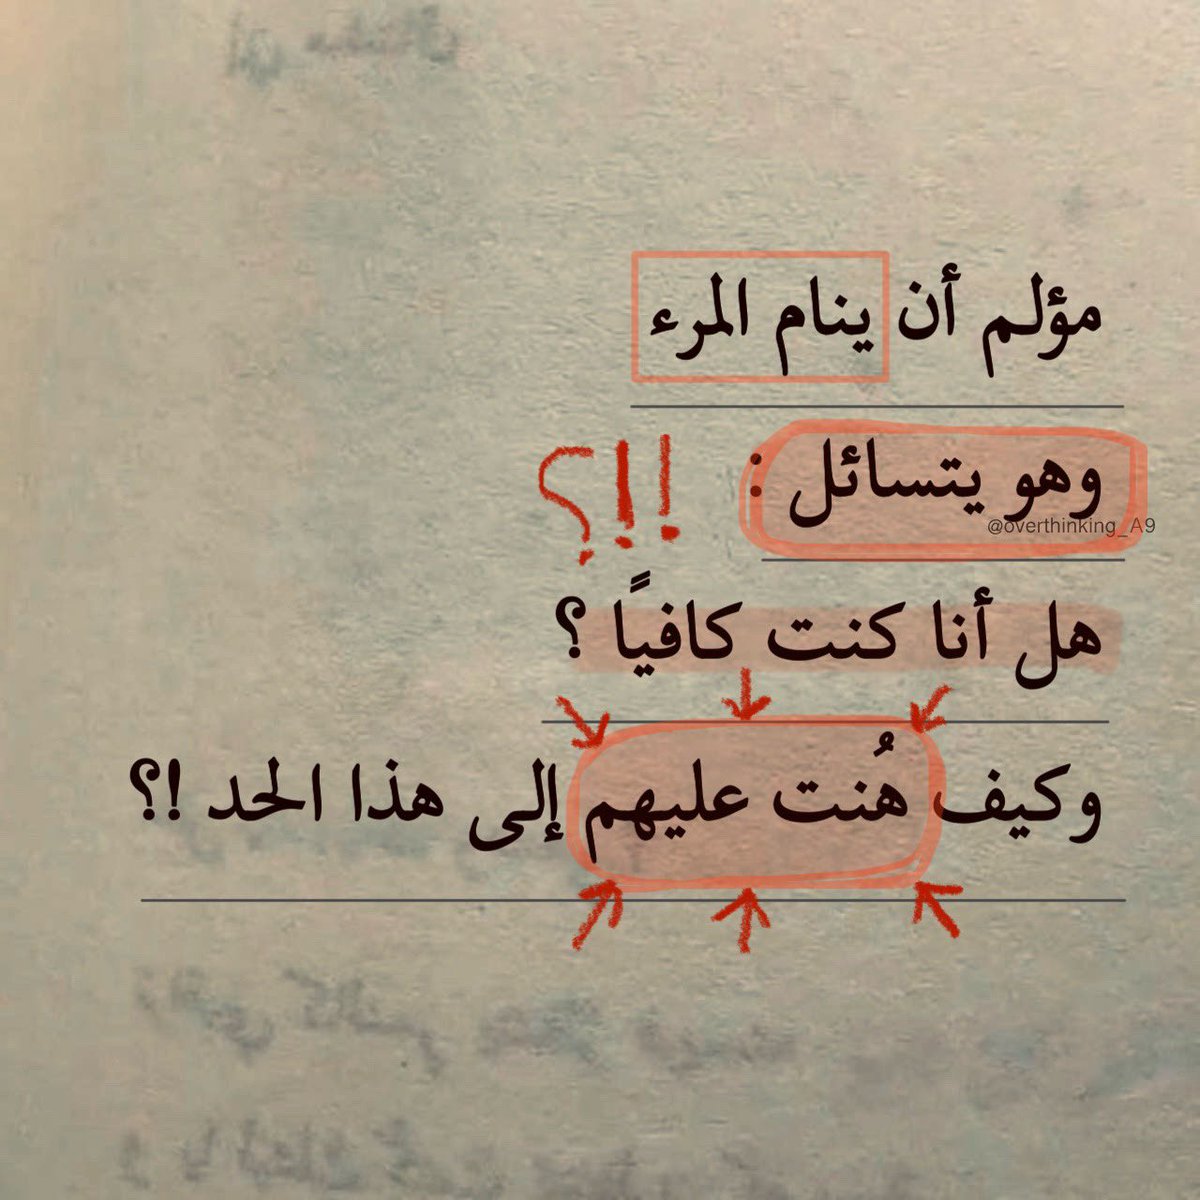 مؤلم أن ينام المرء
وهو يتسائل :
!!؟
@overthinking_A9
هل أنا كنت كافيًا ؟
وكيف هُنت عليهم إلى هذا الحد !؟